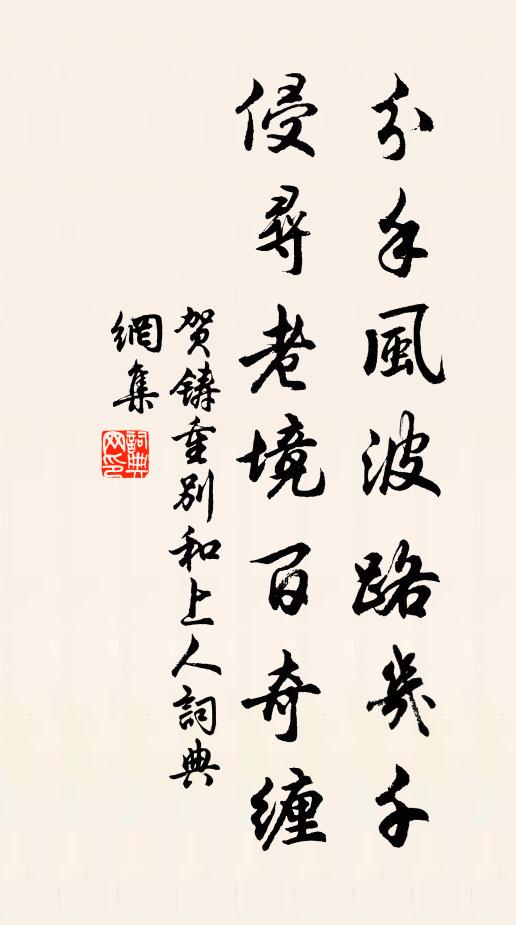 分手風波路幾千
侵尋老境百奇纏
賀鑄重別和上人詞典
網集
詞典
网印